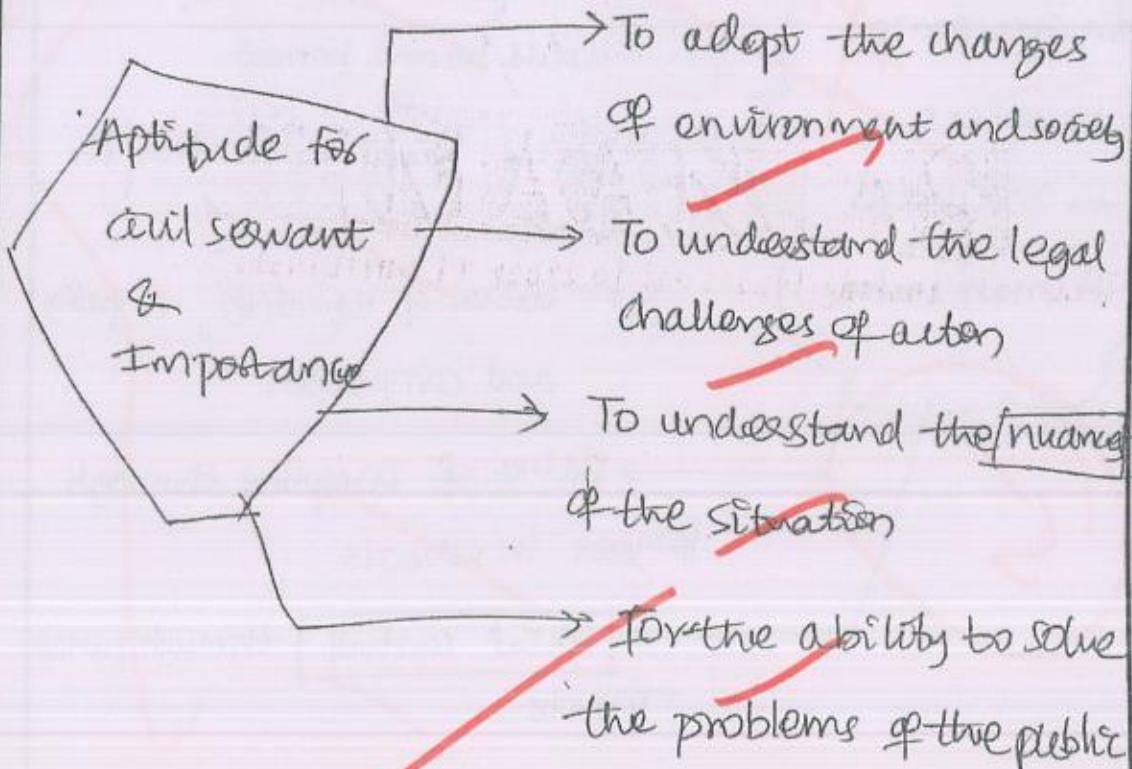 Aptitude for
civil servant
&
Importance
To adopt the changes
of environment and society
To understand the legal
challenges of action
To understand the nuance
of the situation
For the ability to solve
the problems of the public